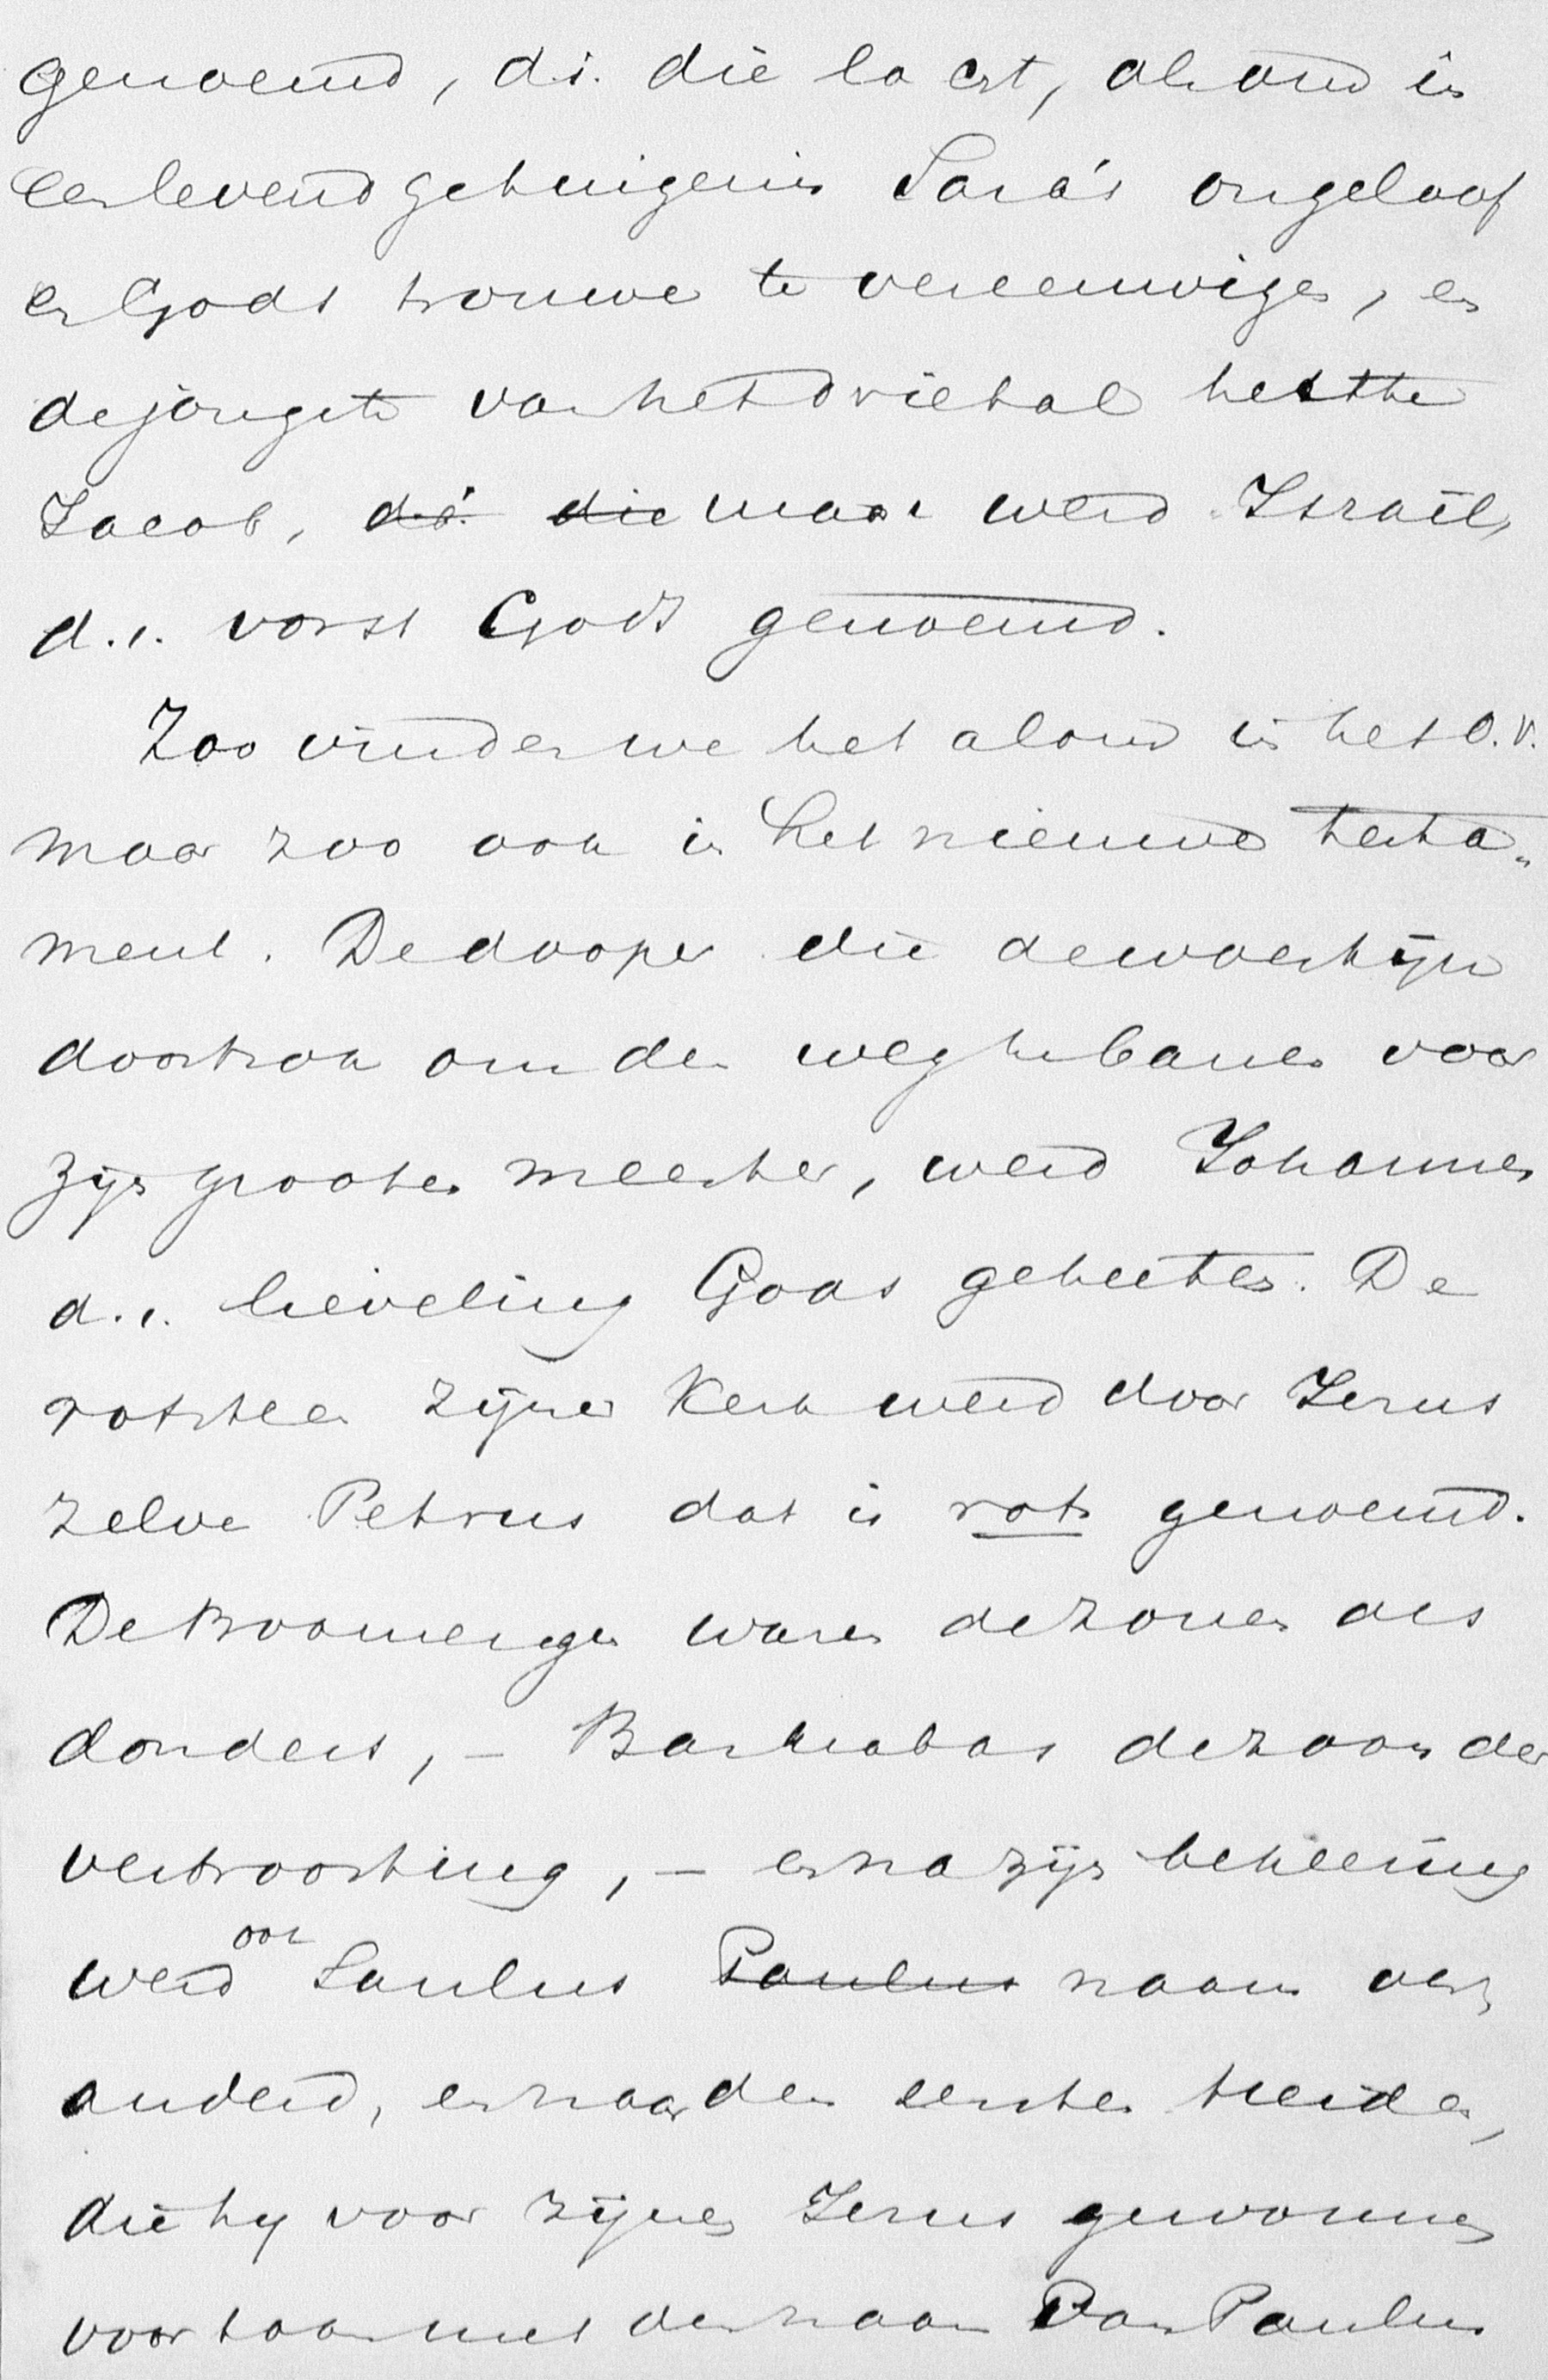 genoemd, d.i. die lacht, als om in
een levend getuigenis Sara's ongeloof
en Gods trouwe te vereeuwigen, en
de jongste van het drietal heette
Jacob, d.i. die maar werd Israël,
d.i. vorst Gods genoemd.
Zoo vinden we het alom in het O.V.
maar zoo ook in het nieuwe testa„
ment. De dooper die de woestijn
doortrok om den weg te banen voor
zijn grooten meester, werd Johannes
d.i. lieveling Gods geheeten. De
rotsteen zijner Kerk werd door Jezus
zelve Petrus dat is rots genoemd.
De Boanerges waren de zonen des
donders, – Barnabas de zoon der
vertroosting, – en na zijn bekeering
werd ook Saulus Paulus naam ver„
anderd, en naar den eersten heiden,
die hy voor zijnen Jezus gewonnen
voortaan met den naam van Paulus